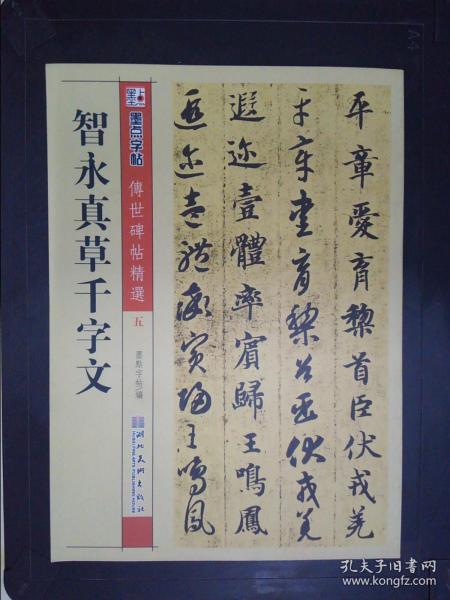 智永真草千字文
墨点字帖
傳世碑帖精選 五
墨點字帖 編
湖北美術出版社
平章愛育黎首臣伏戎羌
平章愛育黎首臣伏戎羌
遐迩壹體率賓歸王鳴鳳
遐迩壹體率賓歸王鳴鳳
A4
孔夫子旧书网
www.kongfz.com